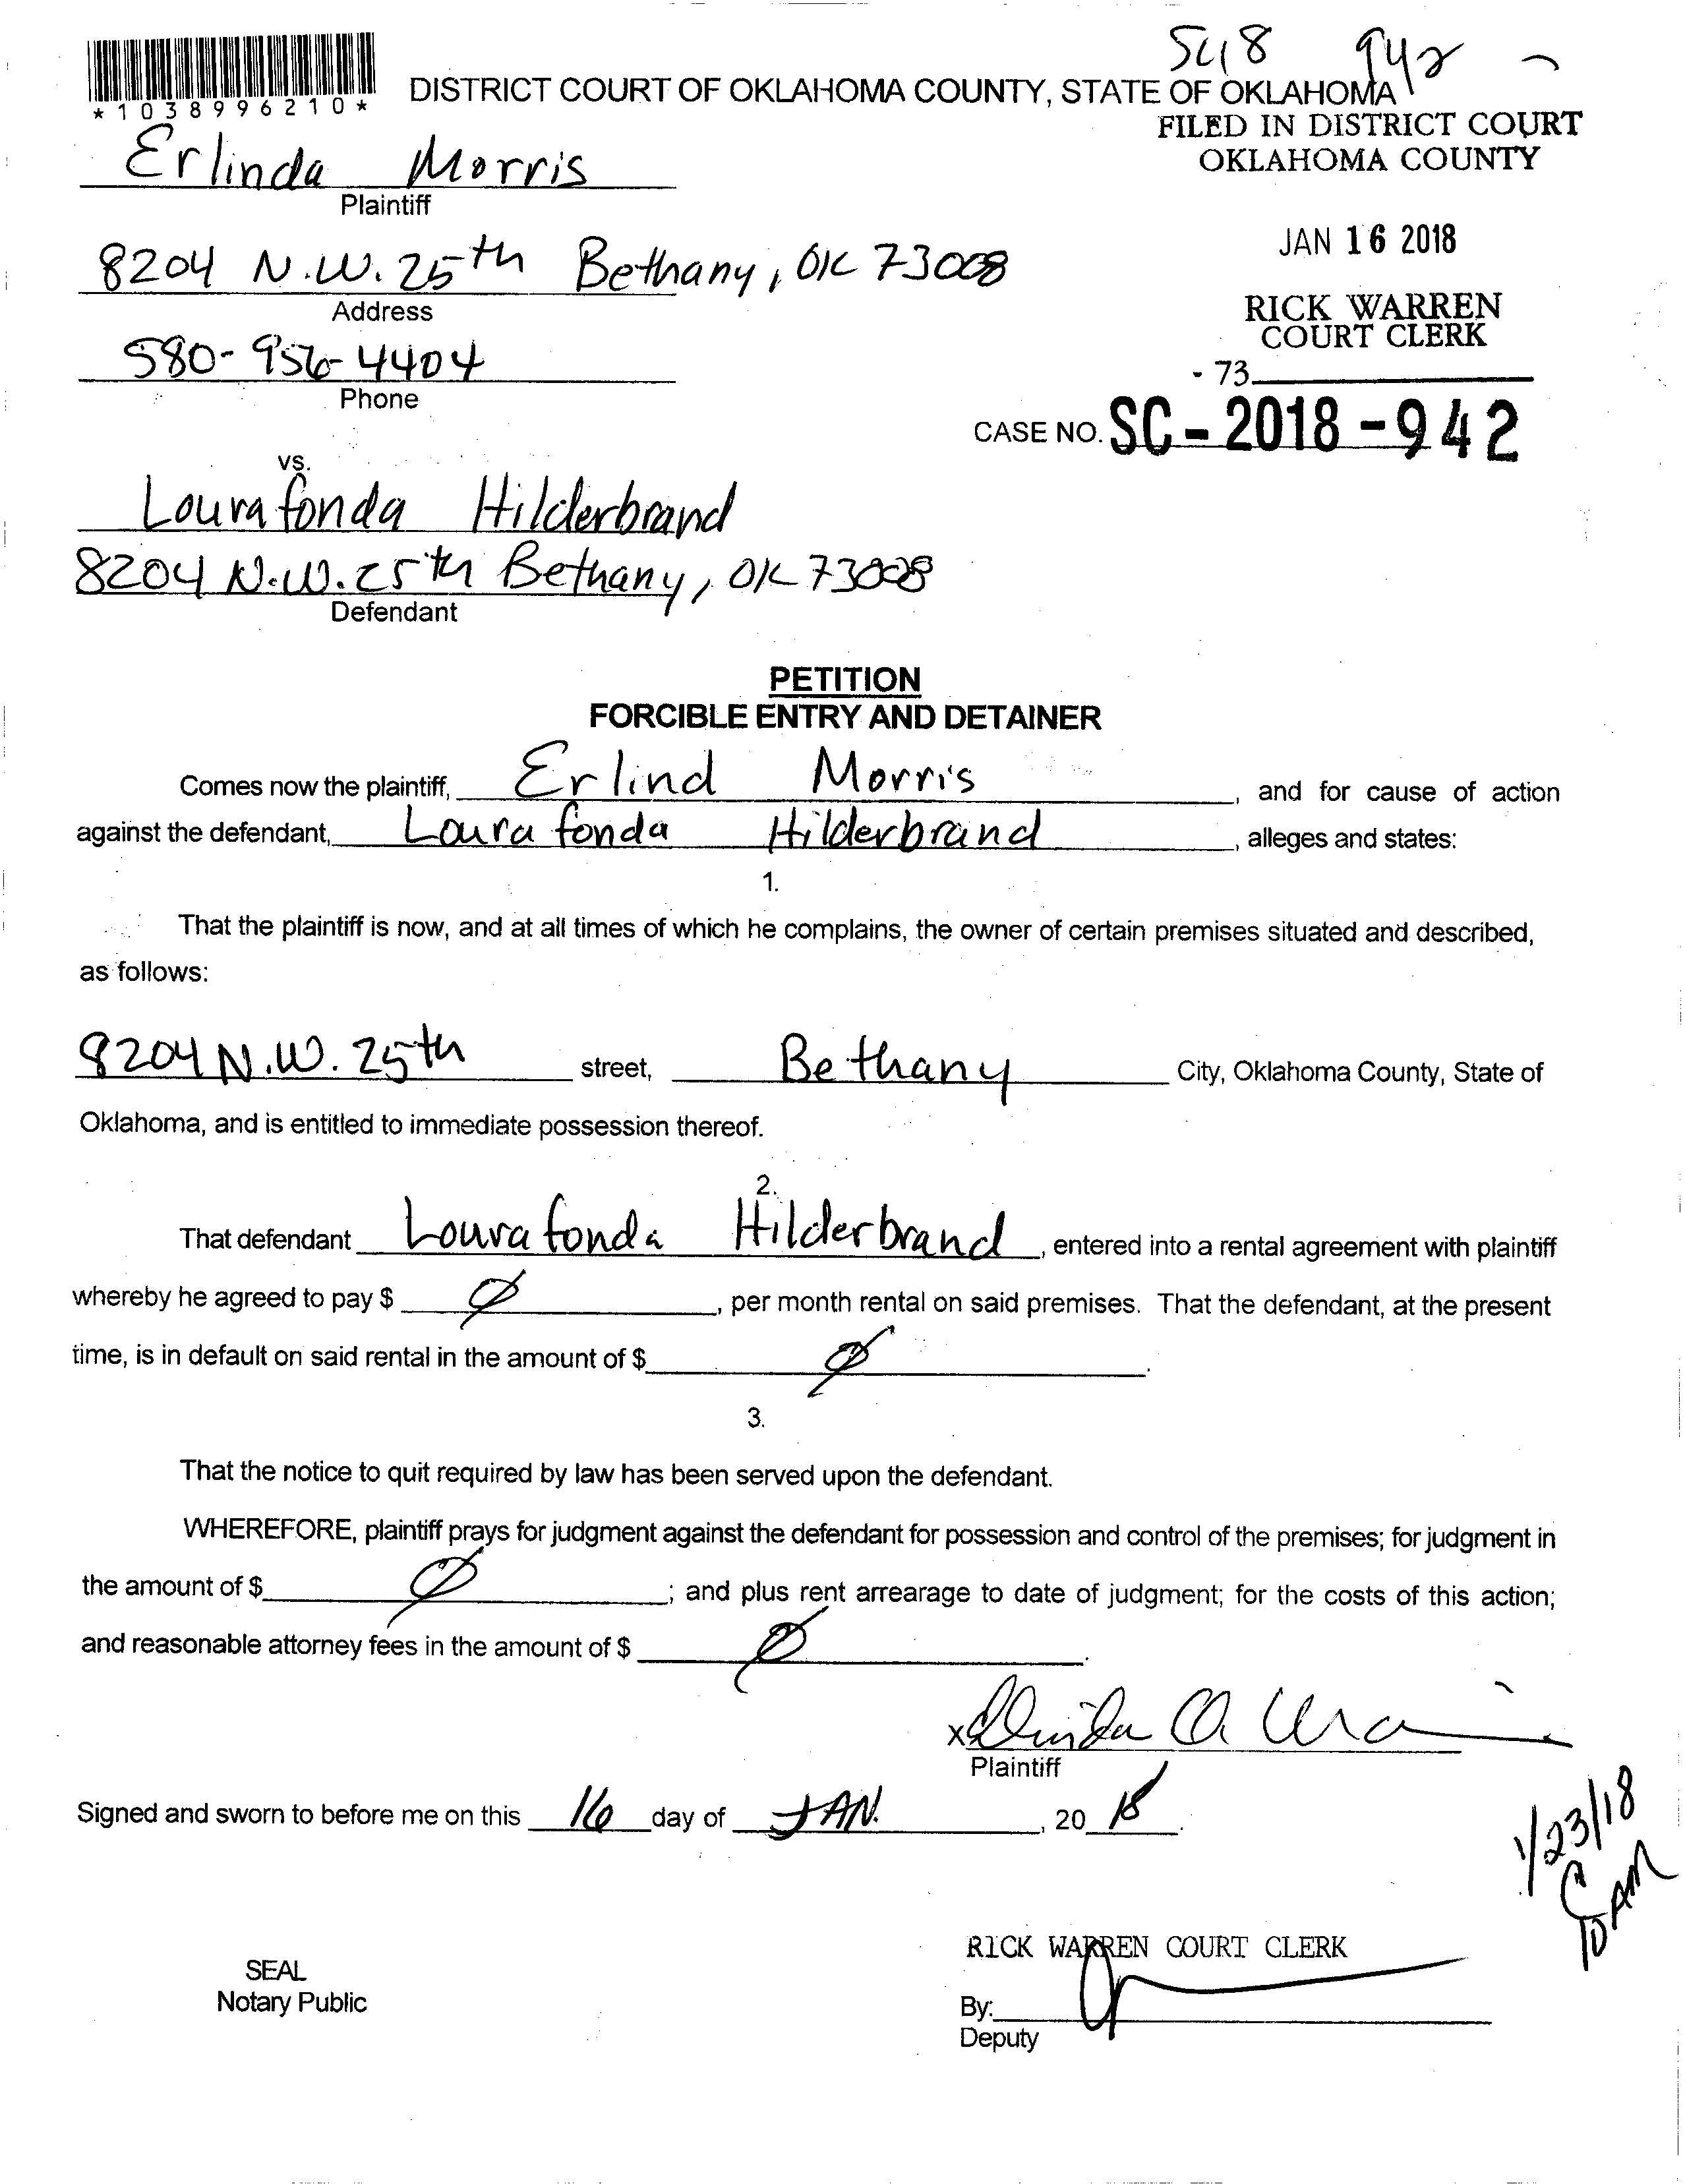 SC18 942
*1038996210*
DISTRICT COURT OF OKLAHOMA COUNTY, STATE OF OKLAHOMA
FILED IN DISTRICT COURT
OKLAHOMA COUNTY
Erlinda Morris
Plaintiff
JAN 16 2018
8204 N.W. 25th Bethany, OK 73008
Address
RICK WARREN
COURT CLERK
580-956-4404
Phone
- 73
CASE NO. SC - 2018 - 942
vs.
Lourafonda Hilderbrand
8204 N.W. 25th Bethany, OK 73008
Defendant
PETITION
FORCIBLE ENTRY AND DETAINER
Comes now the plaintiff, Erlind Morris, and for cause of action
against the defendant, Loura fonda Hilderbrand, alleges and states:
1.
That the plaintiff is now, and at all times of which he complains, the owner of certain premises situated and described,
as follows:
8204 N.W. 25th street, Bethany City, Oklahoma County, State of
Oklahoma, and is entitled to immediate possession thereof.
2.
That defendant Loura fonda Hilderbrand, entered into a rental agreement with plaintiff
whereby he agreed to pay $ Ø, per month rental on said premises. That the defendant, at the present
time, is in default on said rental in the amount of $ Ø.
3.
That the notice to quit required by law has been served upon the defendant.
WHEREFORE, plaintiff prays for judgment against the defendant for possession and control of the premises; for judgment in
the amount of $ Ø; and plus rent arrearage to date of judgment; for the costs of this action;
and reasonable attorney fees in the amount of $ Ø.
x
Plaintiff
Signed and sworn to before me on this 16 day of JAN., 20 18.
1/23/18
C
10AM
RICK WARREN COURT CLERK
SEAL
Notary Public
By:
Deputy